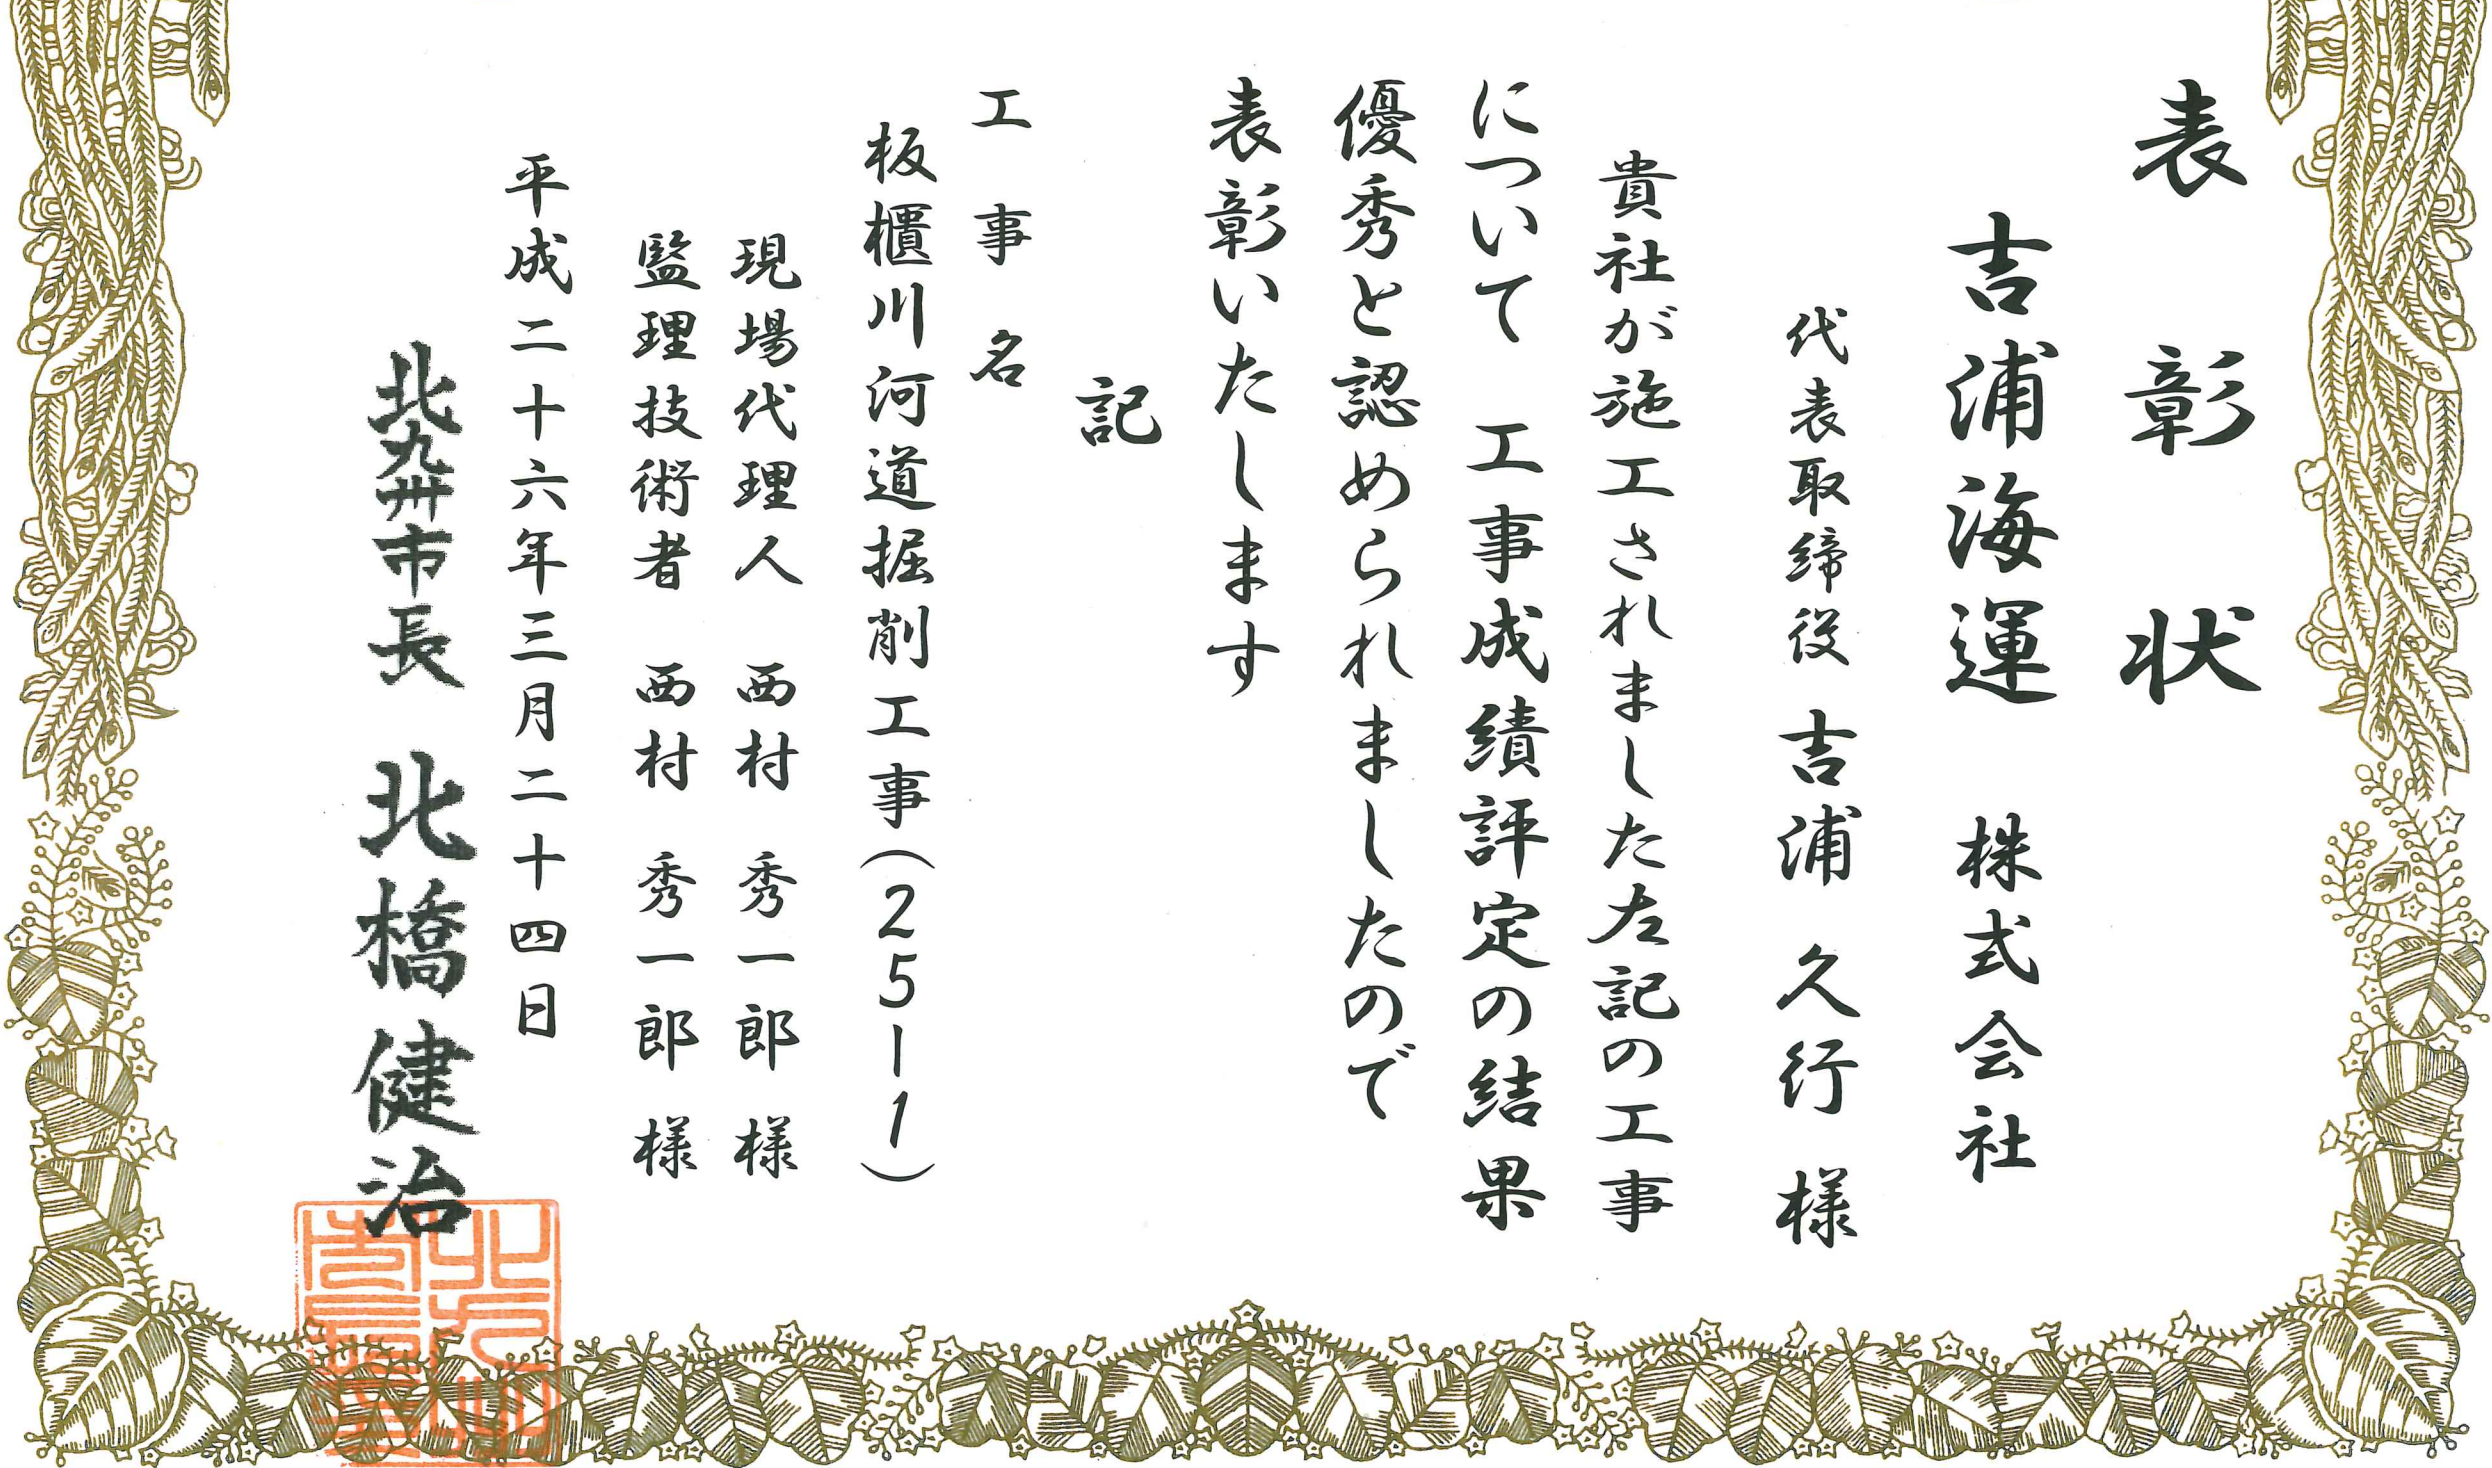 表彰状
吉浦海運 株式会社
代表取締役 吉浦 久行 様
貴社が施工されました左記の工事
について 工事成績評定の結果
優秀と認められましたので
表彰いたします
記
工事名
板櫃川河道掘削工事(25-1)
現場代理人 西村 秀一郎 様
監理技術者 西村 秀一郎 様
平成二十六年三月二十四日
北九州市長 北橋健治